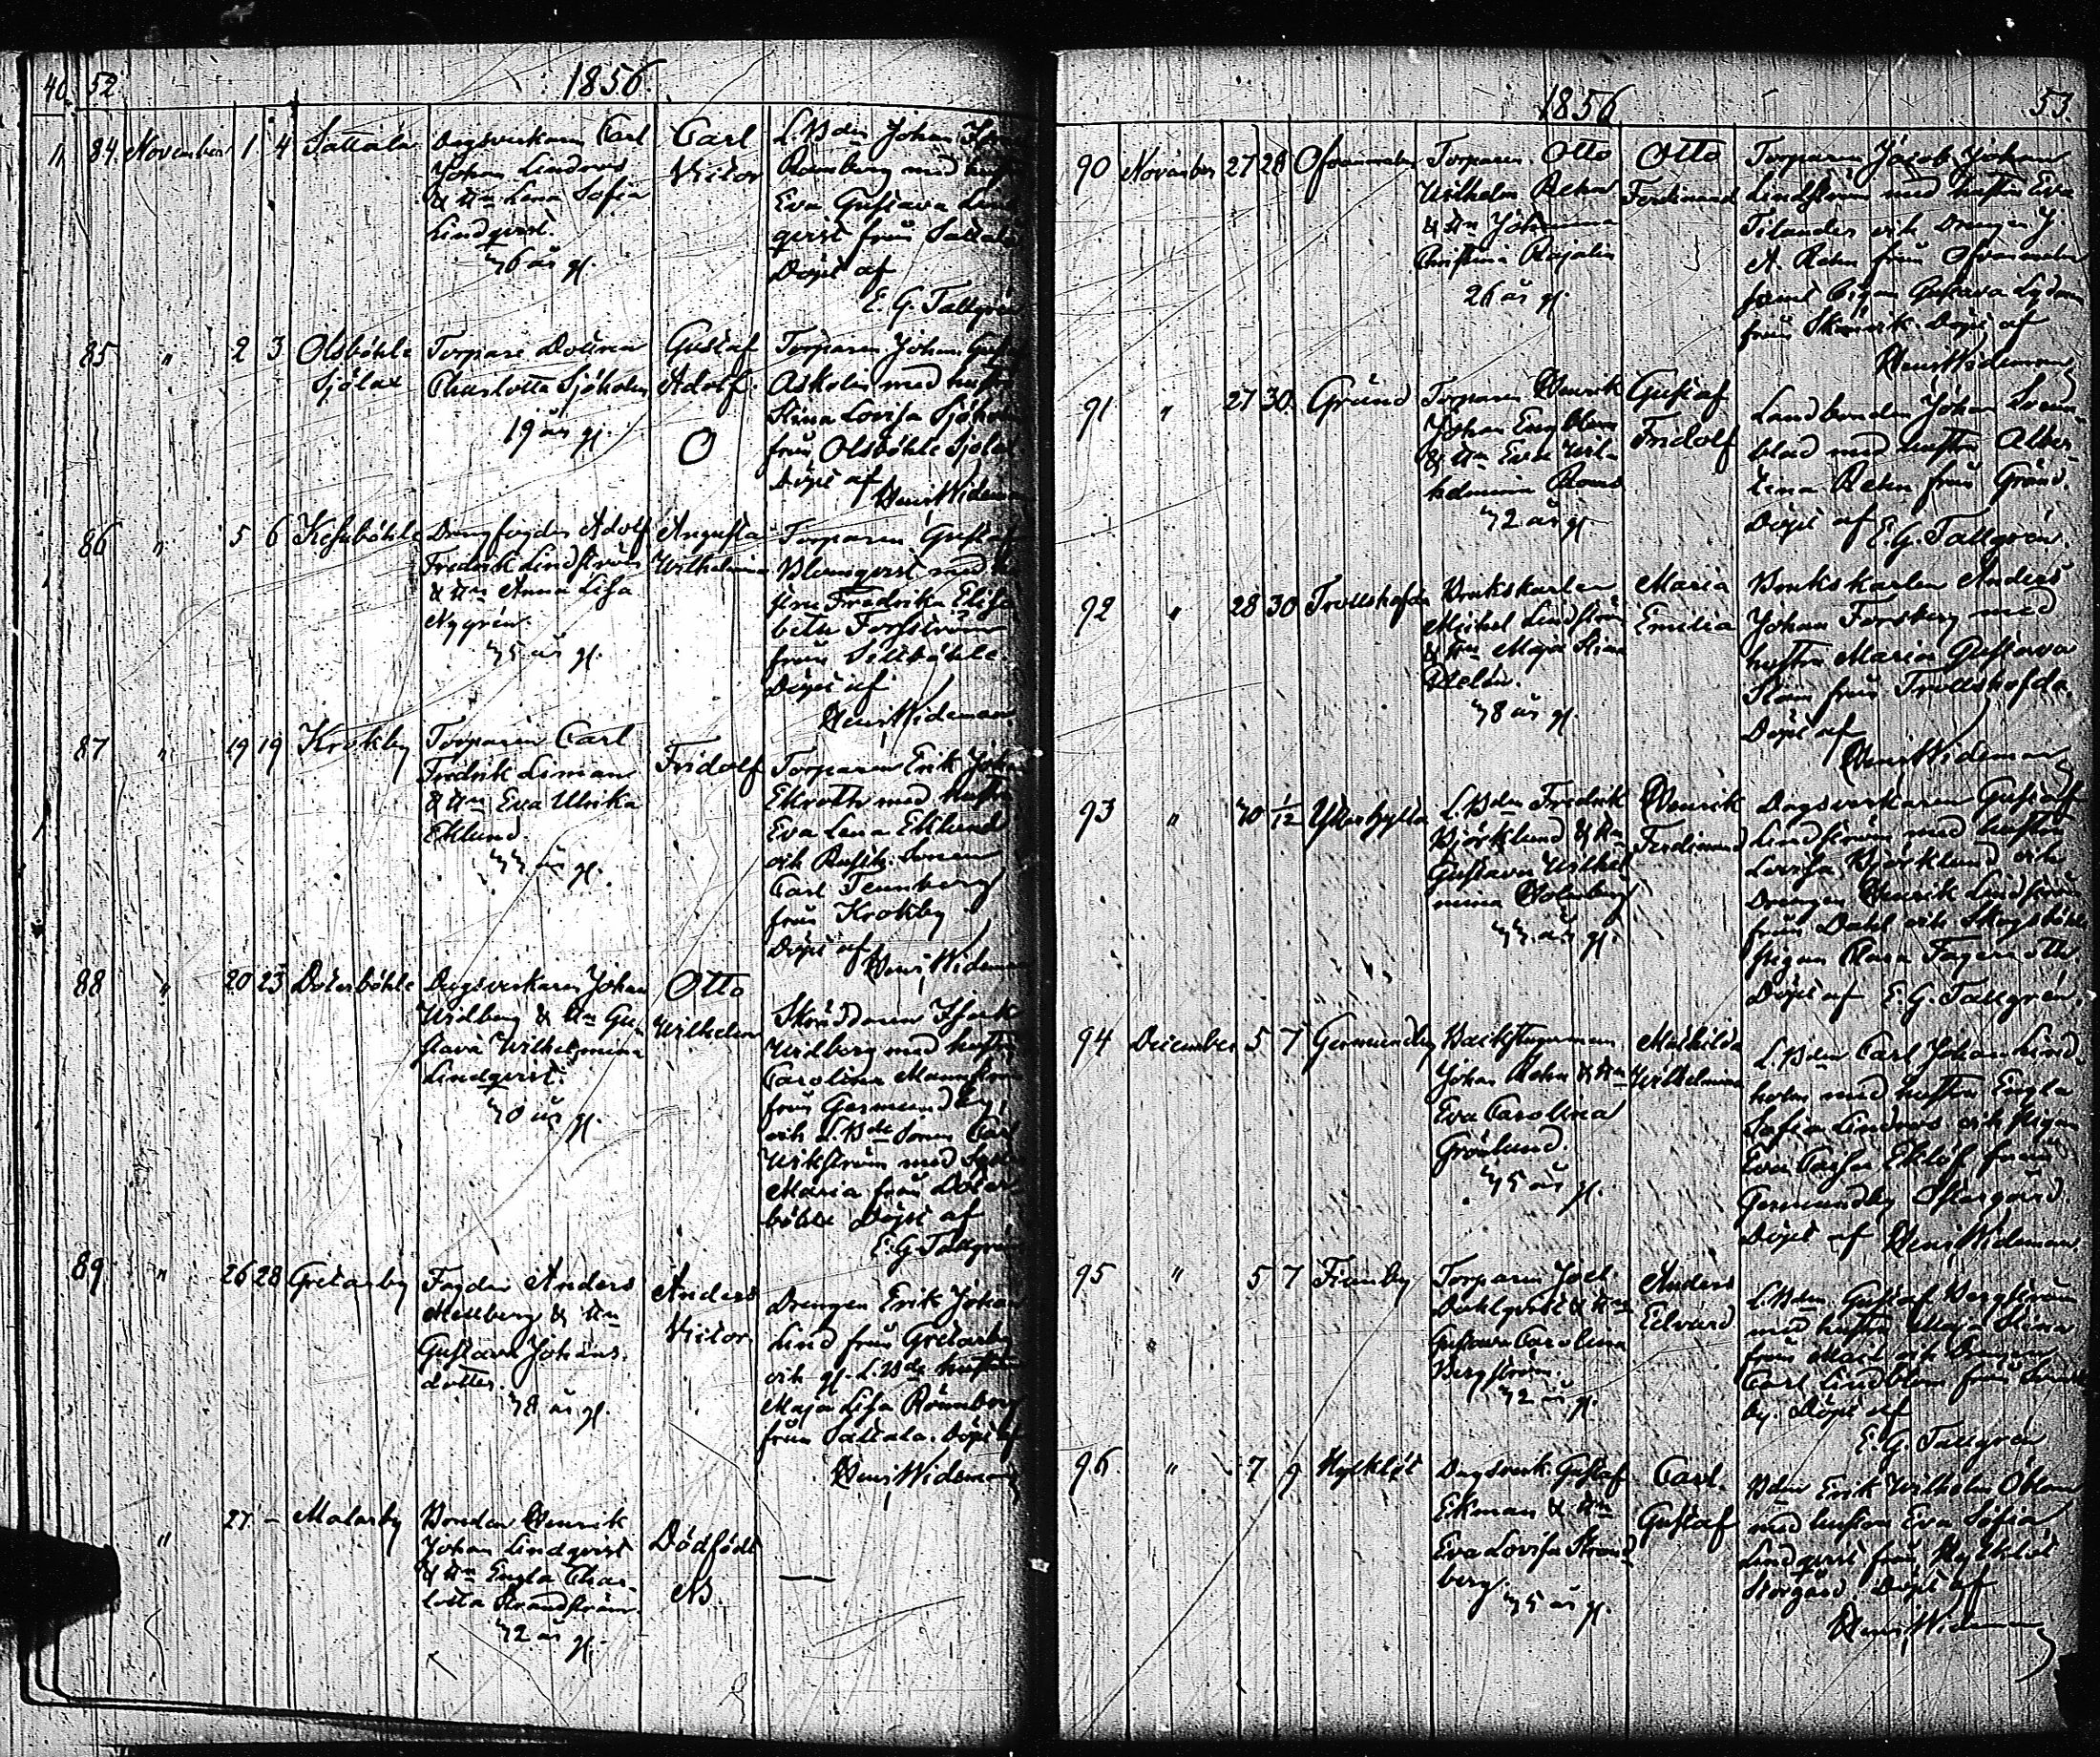 40. 52. 1856.
11 84. November 1 4 Sattala
Dagsverkaren Carl
Johan Lindroos
& Hu Lena Sofia
Lindqvist.
36 år gl.
Carl
Victor
L. Bden Johan
Romberg med hust
Eva Gustava Lind
qvist från Sattala
Döpt af
E. G. Tallgrén
85 " 2 3 Olsböhle
Sjölax
Torpare Dottren
Charlotta Sjöholm
19 år gl.
Gustaf
Adolf.
O
Torparen Johan Gust
Askolin med hustru
Stina Lovisa Sjöholm
från Olsböhle Sjölax
Döpt af
Henr Wideman
86 " 5 6 Kesuböhle
Drengfogden Adolf
Fredrik Lindström
& Hu Anna Lisa
Nygrén.
35 år gl.
Augusta
Wilhelmina
Torparen Gustaf
Blomqvist med
Fredrika Elisa
beth Forsström
från Sillböhle.
Döpt af
Henr Wideman
87 " 19 19 Krokby
Torparen Carl
Fredrik Loman
& Hu Eva Ulrika
Eklund.
33 år gl.
Fridolf
Torparen Erik Johan
Ekroth med hustru
Eva Lena Eklund
och Rusth. Sonen
Carl Tennberg
från Krokby
Döpt af
Henr Wideman
88 " 20 23 Doterböhle
Dagsverkaren Johan
Widberg & Hu Gu-
stava Wilhelmina
Lindqvist.
30 år gl.
Otto
Wilhelm
Skräddaren Isak
Widberg med hustru
Carolina Mannström
från Germundby,
och L. Bde Sonen Carl
Wikström med
Maria från Doter
böhle Döpt af
E. G. Tallgrén
89 " 26 28 Gretarby
Fogden Anders
Mellberg & Hu
Gustava Johans
dotter.
38 år gl.
Anders
Victor.
Drengen Erik Johan
Lind från Gretarby
och gl. L. Bde hustrun
Maja Lisa Römberg
från Sattala. Döpt af
Henr Wideman
" 27. – Malarby
Bonden Henrik
Johan Lindqvist
& Hu Engla Char-
lotta Strandström.
32 år gl.
Dödfödt
NB.
—
1856 53.
90 November 27 28
Torparen Otto
Wilhelm Rehn
& Hu Johanna
Christina Rajalin
26 år gl.
Otto
Ferdinand
Torparen Jacob Johan
Lindström med hustru Eva
Tilander och Drengen J.
A. Rehn från
samt Pigan Gustava
från Döpt af
Henr Wideman
91 " 27 30. Gränd
Torparen Henrik
Johan Engblom
& Hu Eva Wil-
helmina Roms
32 år gl.
Gustaf
Fridolf
Landbonden Johan
blad med hustru Alber-
tina Rehn från Gränd.
Döpt af E. G. Tallgrén.
92 " 28 30 Trollshofda
Brukskarlen
Michel Lindström
& Hu Maja Stina
Helén.
38 år gl.
Maria
Emilia
Brukskarlen Anders
Johan Forsberg med
hustru Maria Gustava
från Trollshofda
Döpt af
Henr Wideman
93 " 30 1/12 Ytterhylta
L. Bden Fredrik
Björklund & Hu
Gustava Wilhel
mina Holmberg
33 år gl.
Henrik
Ferdinand
Dagsverkaren Gustaf
Lindström med hustru
Lovisa Björklund och
Drengen Henrik Lindström
från Dahl och Skogsböhle
Pigan Clara Fageroth
Döpt af E. G. Tallgrén.
94 December 5 7 Germundby
Backstugeman
Johan Rehn & Hu
Eva Carolina
Grönlund.
35 år gl.
Mathilda
Wilhelmina
L. Bden Carl Johan Lind-
holm med hustru Engla
Sofia Lindroos och Pigan
Eva Caisa Eklöf från
Germundby Östergård
Döpt af Henr Wideman
95 " 5 7 Finnby
Torparen Joel
Dahlqvist & Hu
Gustava Carolina
Bergström
32 år gl.
Anders
Edvard
L. Bden Gustaf Bergström
med hustru Maja Stina
från och Drengen
Carl Lindblom från
by. Döpt af
E. G. Tallgrén
96. " 7 9
Dagsverk. Gustaf
Ekman & Hu
Eva Lovisa Strand
berg.
35 år gl.
Carl
Gustaf
Bden Erik Wilhelm Öhlom
med hustru Eva Sofia
Lindqvist från
Storgård Döpt af
Henr Wideman